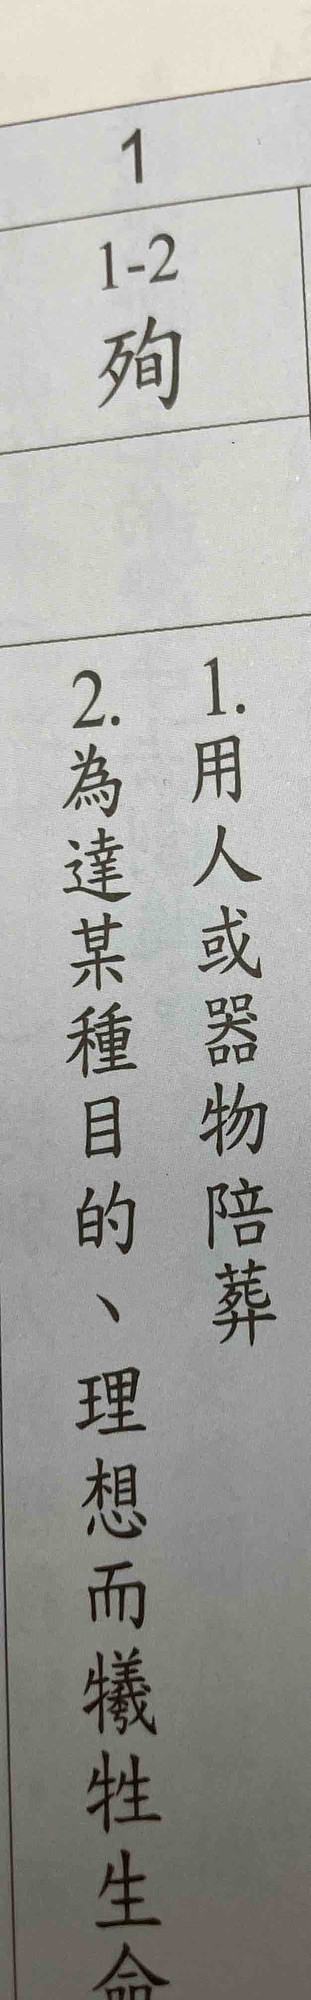 1
1-2
殉
1.用人或器物陪葬
2.為達某種目的、理想而犧牲生命